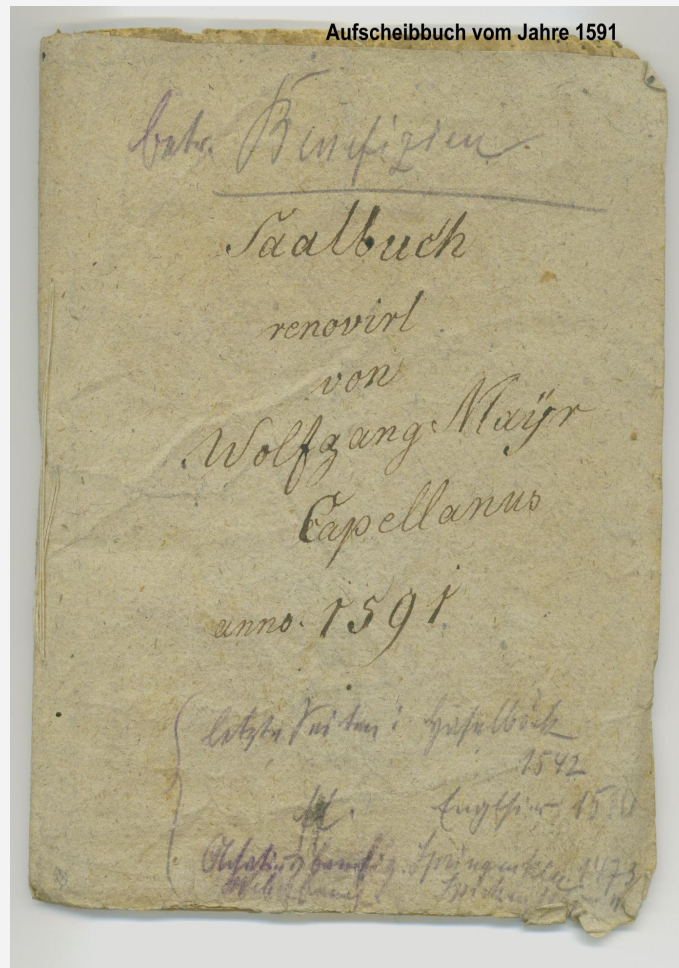 Aufscheibbuch vom Jahre 1591
betr. Benefizien.
Saalbuch
renovirt
von
Wolfgang Mayr
Capellanus
anno. 1591
letzte Seiten: Haselböck
1542
ff.
1473